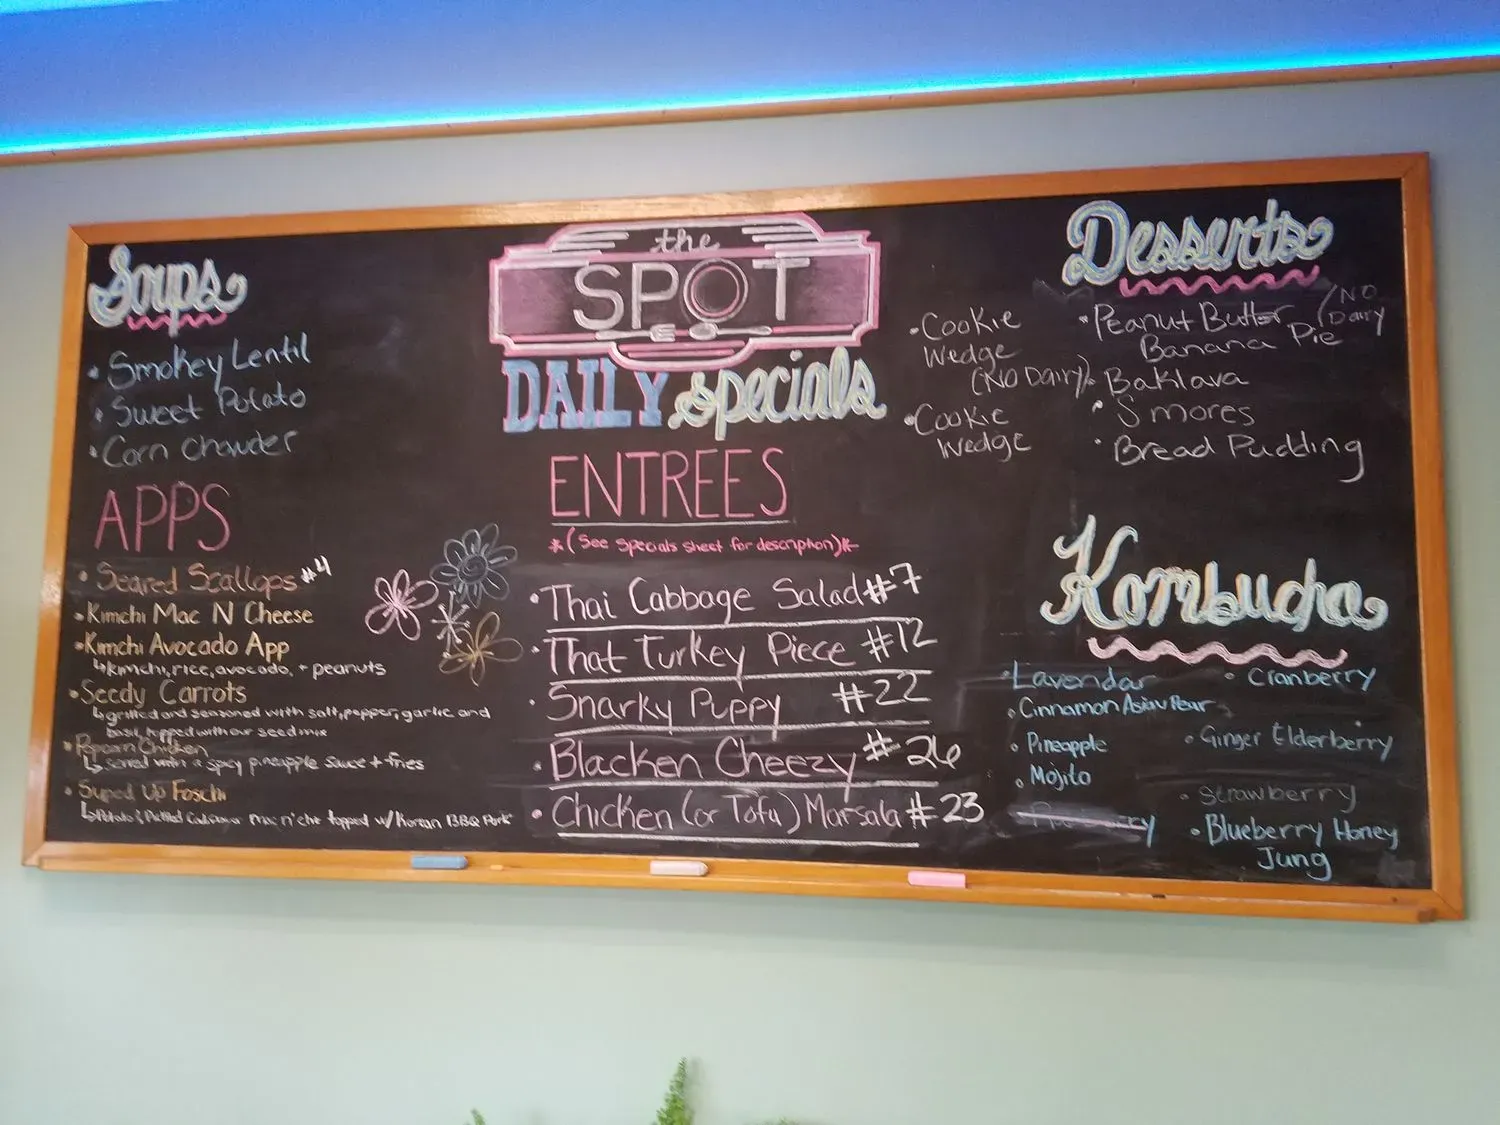 the
SPOT
DAILY specials
Soups
• Smokey Lentil
• Sweet Potato
• Corn Chowder
APPS
• Seared Scallops #4
• Kimchi Mac N Cheese
• Kimchi Avocado App
↳ kimchi, rice, avocado, + peanuts
• Seedy Carrots
↳ grilled and seasoned with salt, pepper, garlic and
basil, topped with our seed mix
• Popcorn Chicken
↳ served with a spicy pineapple sauce + fries
• Suped Up Foschi
mac n' che topped w/ Korean BBQ Pork
ENTREES
*(See specials sheet for description)*
• Thai Cabbage Salad #7
• That Turkey Piece #12
• Snarky Puppy #22
• Blacken Cheezy #26
• Chicken (or Tofu) Marsala #23
Desserts
• Cookie
Wedge
(NO Dairy)
• Cookie
Wedge
• Peanut Butter /NO
Banana Pie Dairy
• Baklava
• S'mores
• Bread Pudding
Kombucha
• Lavendar
• Cinnamon Asian Pear
• Pineapple
• Mojito
• Cranberry
• Ginger Elderberry
• Strawberry
• Blueberry Honey
Jung